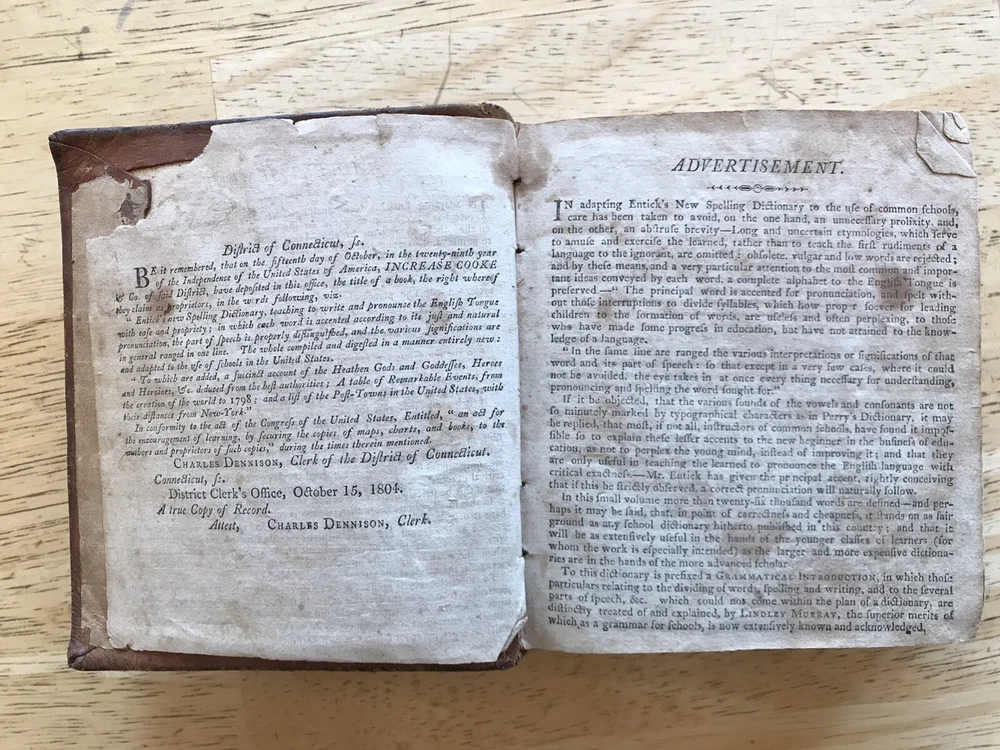 Diſtrict of Connecticut, ſs.
BE it remembered, that on the fifteenth day of October, in the twenty-ninth year
of the Independence of the United States of America, INCREASE COOKE
& Co. of ſaid Diſtrict, have depoſited in this office, the title of a book, the right whereof
they claim as proprietors, in the words following, viz.
"Entick's new Spelling Dictionary, teaching to write and pronounce the Engliſh Tongue
with eaſe and propriety; in which each word is accented according to its juſt and natural
pronunciation, the part of ſpeech is properly diſtinguiſhed, and the various ſignifications are
in general ranged in one line. The whole compiled and digeſted in a manner entirely new:
and adapted to the uſe of ſchools in the United States.
"To which are added, a ſuccinct account of the Heathen Gods and Goddeſſes, Heroes
and Heroines, &c. deduced from the beſt authorities; A table of Remarkable Events, from
the creation of the world to 1798; and a liſt of the Poſt-Towns in the United States, with
their diſtances from New-York."
In conformity to the act of the Congreſs of the United States, Entitled, "an act for
the encouragement of learning, by ſecuring the copies of maps, charts, and books, to the
authors and proprietors of ſuch copies," during the times therein mentioned.
CHARLES DENNISON, Clerk of the Diſtrict of Connecticut.
Connecticut, ſc.
Diſtrict Clerk's Office, October 15, 1804.
A true Copy of Record.
Atteſt, CHARLES DENNISON, Clerk.
ADVERTISEMENT.
IN adapting Entick's New Spelling Dictionary to the uſe of common ſchools,
care has been taken to avoid, on the one hand, an unneceſſary prolixity, and,
on the other, an abſtruſe brevity—Long and uncertain etymologies, which ſerve
to amuſe and exerciſe the learned, rather than to teach the firſt rudiments of a
language to the ignorant, are omitted: obſolete, vulgar and low words are rejected;
and by theſe means, and a very particular attention to the moſt common and impor-
tant ideas conveyed by each word, a complete alphabet to the Engliſh Tongue is
preſerved.—" The principal word is accented for pronunciation, and ſpelt with-
out thoſe interruptions to divide ſyllables, which how proper ſoever for leading
children to the formation of words, are uſeleſs and often perplexing, to thoſe
who have made ſome progreſs in education, but have not attained to the know-
ledge of a language.
"In the ſame line are ranged the various interpretations or ſignifications of that
word and its part of ſpeech: ſo that except in a very few caſes, where it could
not be avoided, the eye takes in at once every thing neceſſary for underſtanding,
pronouncing and ſpelling the word ſought for."
If it be objected, that the various ſounds of the vowels and conſonants are not
ſo minutely marked by typographical characters as in Perry's Dictionary, it may
be replied, that moſt, if not all, inſtructors of common ſchools, have found it impoſ-
ſible ſo to explain theſe leſſer accents to the new beginner in the buſineſs of edu-
cation, as not to perplex the young mind, inſtead of improving it; and that they
are only uſeful in teaching the learned to pronounce the Engliſh language with
critical exactneſs.—Mr. Entick has given the principal accent, rightly conceiving
that if this be ſtrictly obſerved, a correct pronunciation will naturally follow.
In this ſmall volume more than twenty-ſix thouſand words are defined—and per-
haps it may be ſaid, that, in point of correctneſs and cheapneſs, it ſtands on as fair
ground as any ſchool dictionary hitherto publiſhed in this country; and that it
will be as extenſively uſeful in the hands of the younger claſſes of learners (for
whom the work is eſpecially intended) as the larger and more expenſive dictiona-
ries are in the hands of the more advanced ſcholar.
To this dictionary is prefixed a GRAMMATICAL INTRODUCTION, in which thoſe
particulars relating to the dividing of words, ſpelling and writing, and to the ſeveral
parts of ſpeech, &c. which could not come within the plan of a dictionary, are
diſtinctly treated of and explained, by LINDLEY MURRAY, the ſuperior merits of
which, as a grammar for ſchools, is now extenſively known and acknowledged,